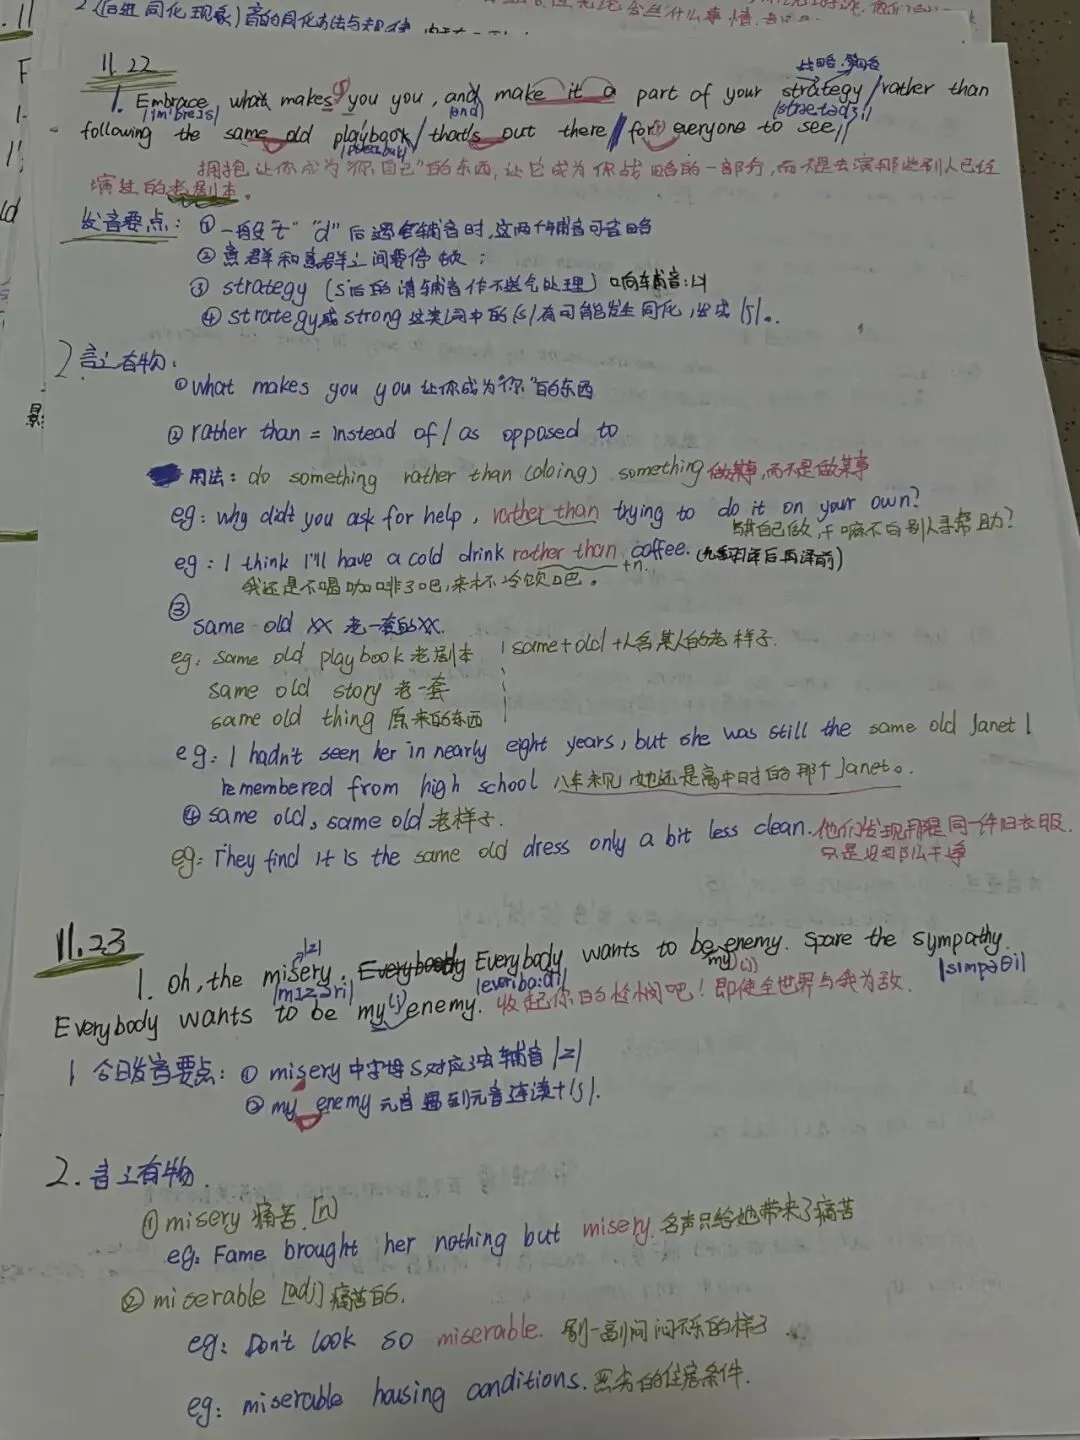 2.(后进同化现象)音的同化方法与规律
11.22
战略.策略
1. Embrace what makes you you, and make it a part of your strategy/rather than
following the same old playbook/that's out there/for everyone to see//
拥抱让你成为"你自己"的东西,让它成为你战略的一部分,而不是去演那些别人已经
演过的老剧本。
发音要点: ① 一般"t" "d"后遇到辅音时,这两个辅音可省略
② 意群和意群之间要停顿;
③ strategy (s后的清辅音作不送气处理)
④ strategy或strong这类词中的|s|有可能发生同化,
2 言之有物:
①what makes you you 让你成为"你"的东西
② rather than = instead of / as opposed to
用法: do something rather than (doing) something 做某事,而不是做某事
eg: why didn't you ask for help, rather than trying to do it on your own?
eg: I think I'll have a cold drink rather than coffee.
+n.
我还是不喝咖啡了吧,来杯冷饮吧。
③
same old xx 老一套的xx.
eg: same old playbook 老剧本 | same+old+人名 某人的老样子.
same old story 老一套
same old thing 原来的东西
eg: I hadn't seen her in nearly eight years, but she was still the same old Janet I
remembered from high school 八年未见 她还是高中时的那个Janet。
④ same old, same old 老样子.
eg: They find it is the same old dress only a bit less clean. 他们发现那是同一件旧衣服
只是没那么干净
11.23
|z|
1. Oh, the misery. Everybody Everybody wants to be enemy. Spare the sympathy.
my
Everybody wants to be my enemy. 收起你的怜悯吧!即使全世界与我为敌.
1 今日发音要点: ① misery 中字母s对应浊辅音|z|
② my enemy 元音遇到元音连读+|j|.
2. 言之有物.
① misery 痛苦.[n]
eg: Fame brought her nothing but misery. 名声只给她带来了痛苦
② miserable [adj] 痛苦的.
eg: Don't look so miserable. 别一副闷闷不乐的样子
eg: miserable housing conditions. 恶劣的住房条件.